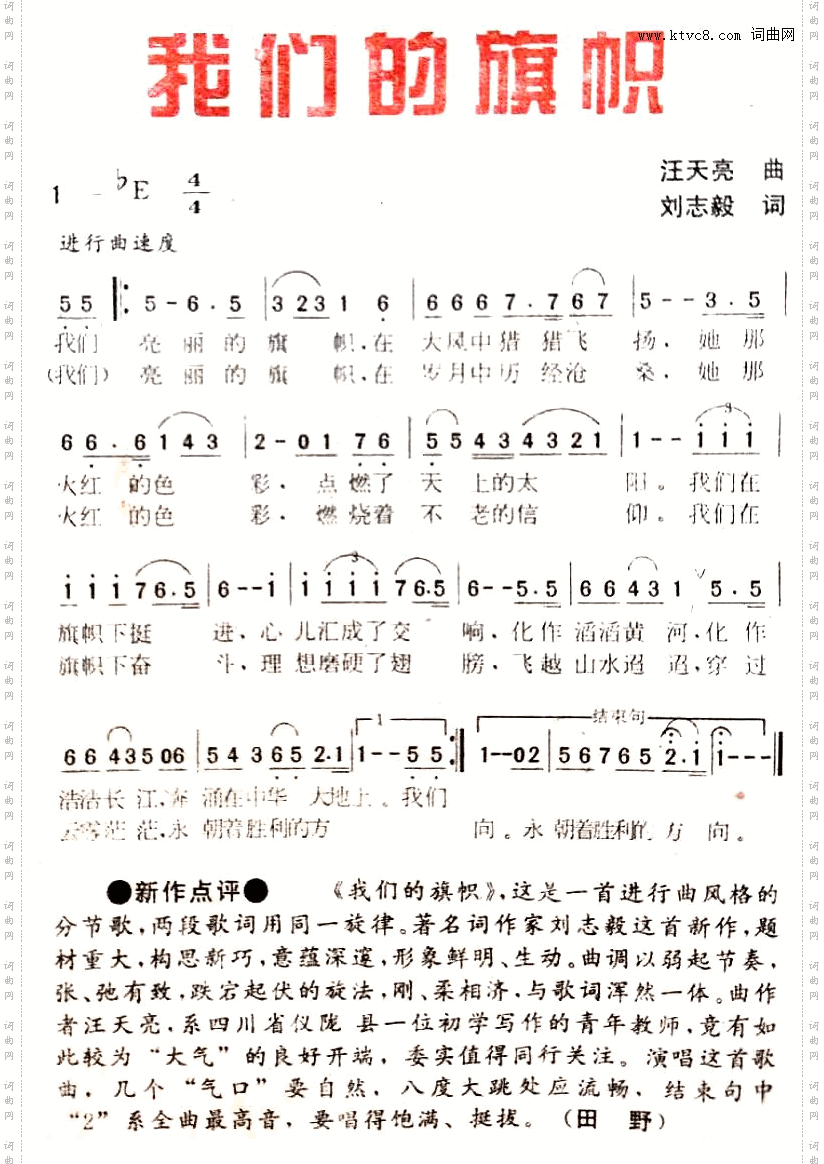 www.ktvc8.com 词曲网
我们的旗帜
1 - ♭E 4/4
汪天亮 曲
刘志毅 词
进行曲速度
5 5 5 - 6 . 5 3 2 3 1 6 6 6 6 7 . 7 6 7 5 - - 3 . 5
我们 亮丽的旗帜,在大风中猎猎飞扬,她那
(我们)亮丽的旗帜,在岁月中历经沧桑,她那
3
6 6 . 6 1 4 3 2 - 0 1 7 6 5 5 4 3 4 3 2 1 1 - - i i i
火红的色彩,点燃了天上的太阳。我们在
火红的色彩,燃烧着不老的信仰。我们在
3
i i i 7 6 . 5 6 - - i i i i i 7 6 . 5 6 - - 5 . 5 6 6 4 3 1 5 . 5
旗帜下挺进,心儿汇成了交响,化作滔滔黄河,化作
旗帜下奋斗,理想磨硬了翅膀,飞越山水迢迢,穿过
1 结束句
6 6 4 3 5 0 6 5 4 3 6 5 2 . 1 1 - - 5 5 1 - - 0 2 5 6 7 6 5 2 . i i - - -
浩浩长江,奔涌在中华大地上。我们
茫茫,永朝着胜利的方向。永朝着胜利的方向。
●新作点评● 《我们的旗帜》,这是一首进行曲风格的
分节歌,两段歌词用同一旋律。著名词作家刘志毅这首新作,题
材重大,构思新巧,意蕴深邃,形象鲜明、生动。曲调以弱起节奏,
张、弛有致,跌宕起伏的旋法,刚、柔相济,与歌词浑然一体。曲作
者汪天亮,系四川省仪陇 县一位初学写作的青年教师,竟有如
此较为“大气”的良好开端,委实值得同行关注。演唱这首歌
曲,几个“气口”要自然,八度大跳处应流畅,结束句中
“2”系全曲最高音,要唱得饱满、挺拔。(田 野)